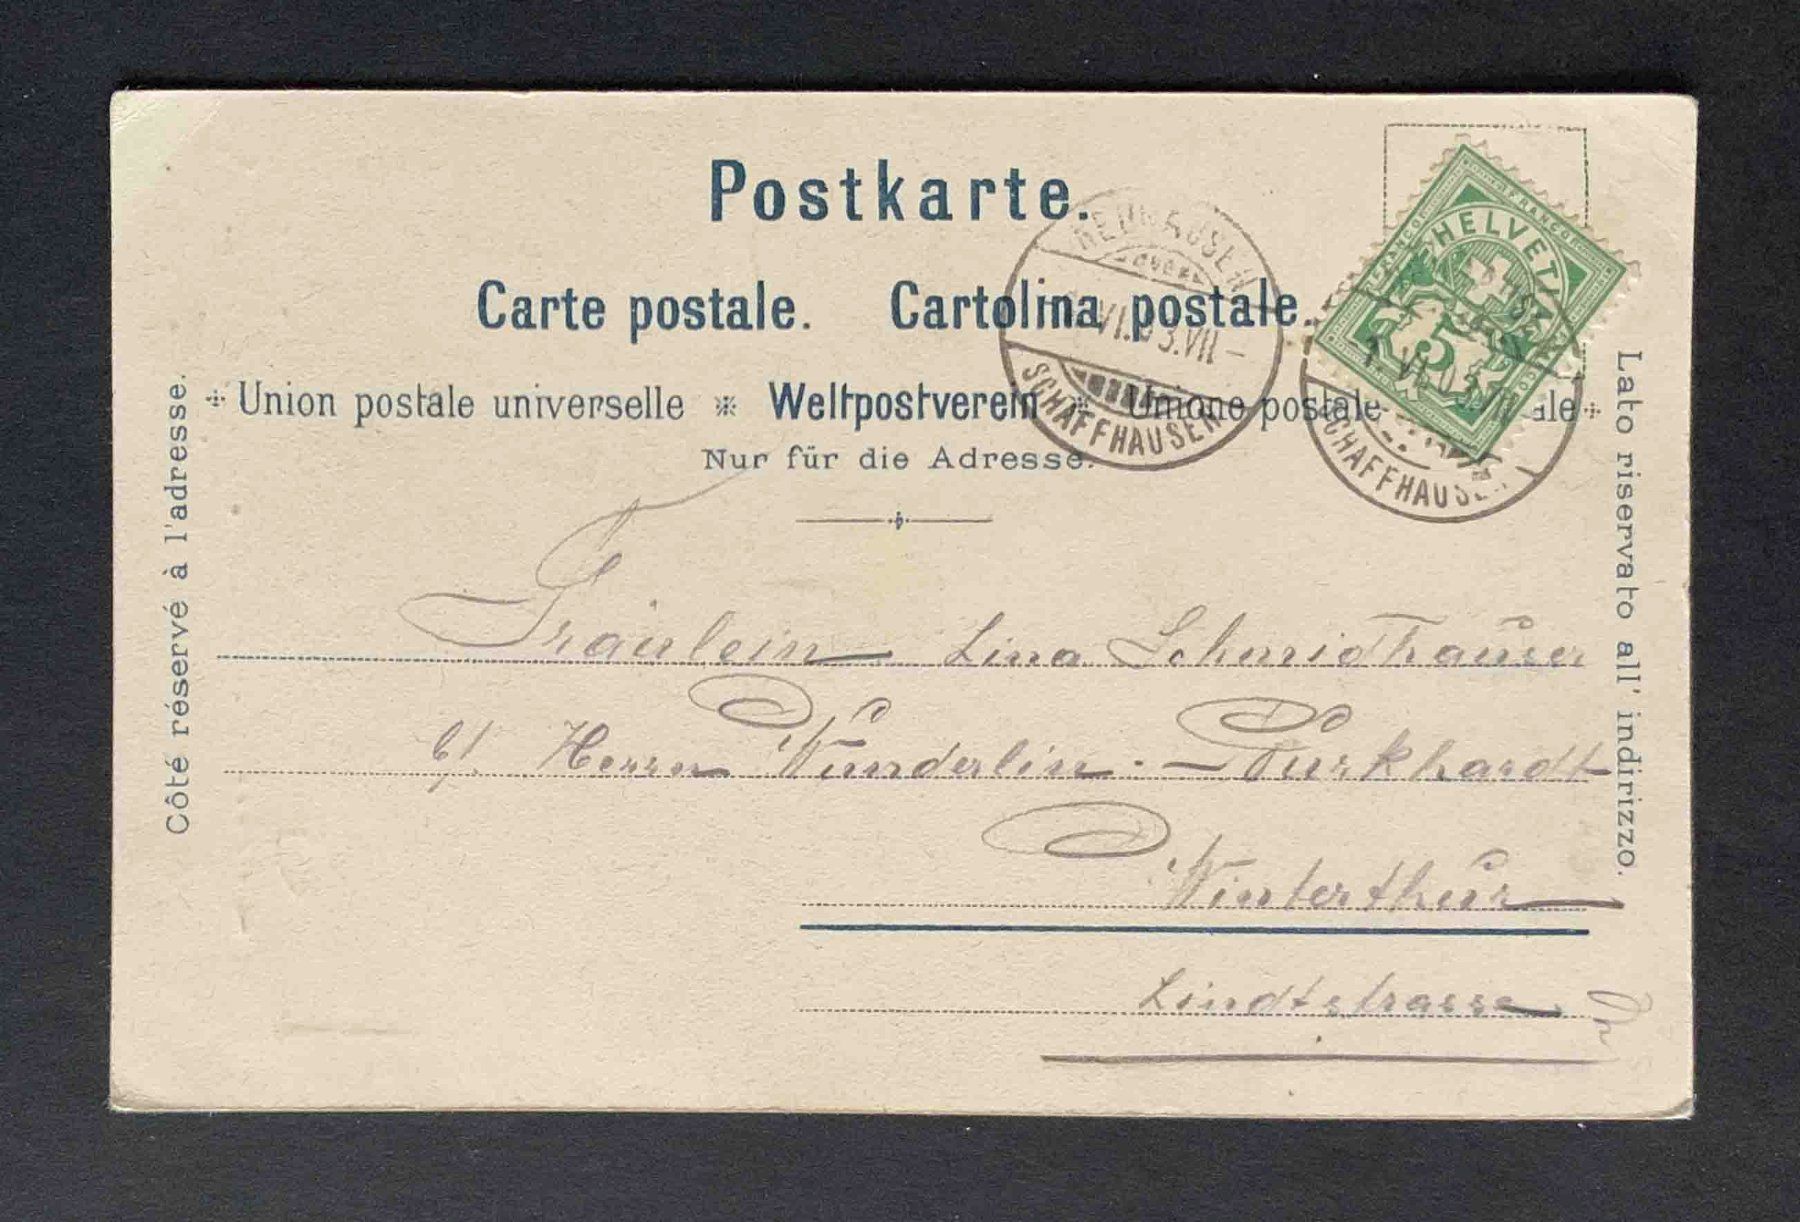 Postkarte.
Carte postale. Cartolina postale.
Union postale universelle Weltpostverein Unione postale
Nur für die Adresse.
Côté réservé à l'adresse.
Lato riservato all' indirizzo.
NEUHAUSEN
1.VI.03.VII-
SCHAFFHAUSEN
FRANCO FRANCO
HELVETIA
5
1.VI.03.VII
SCHAFFHAUSEN
Fräulein Lina Schmidhauser
b/. Herrn Wunderlin-Burkhardt
Winterthur
Lindtstrasse